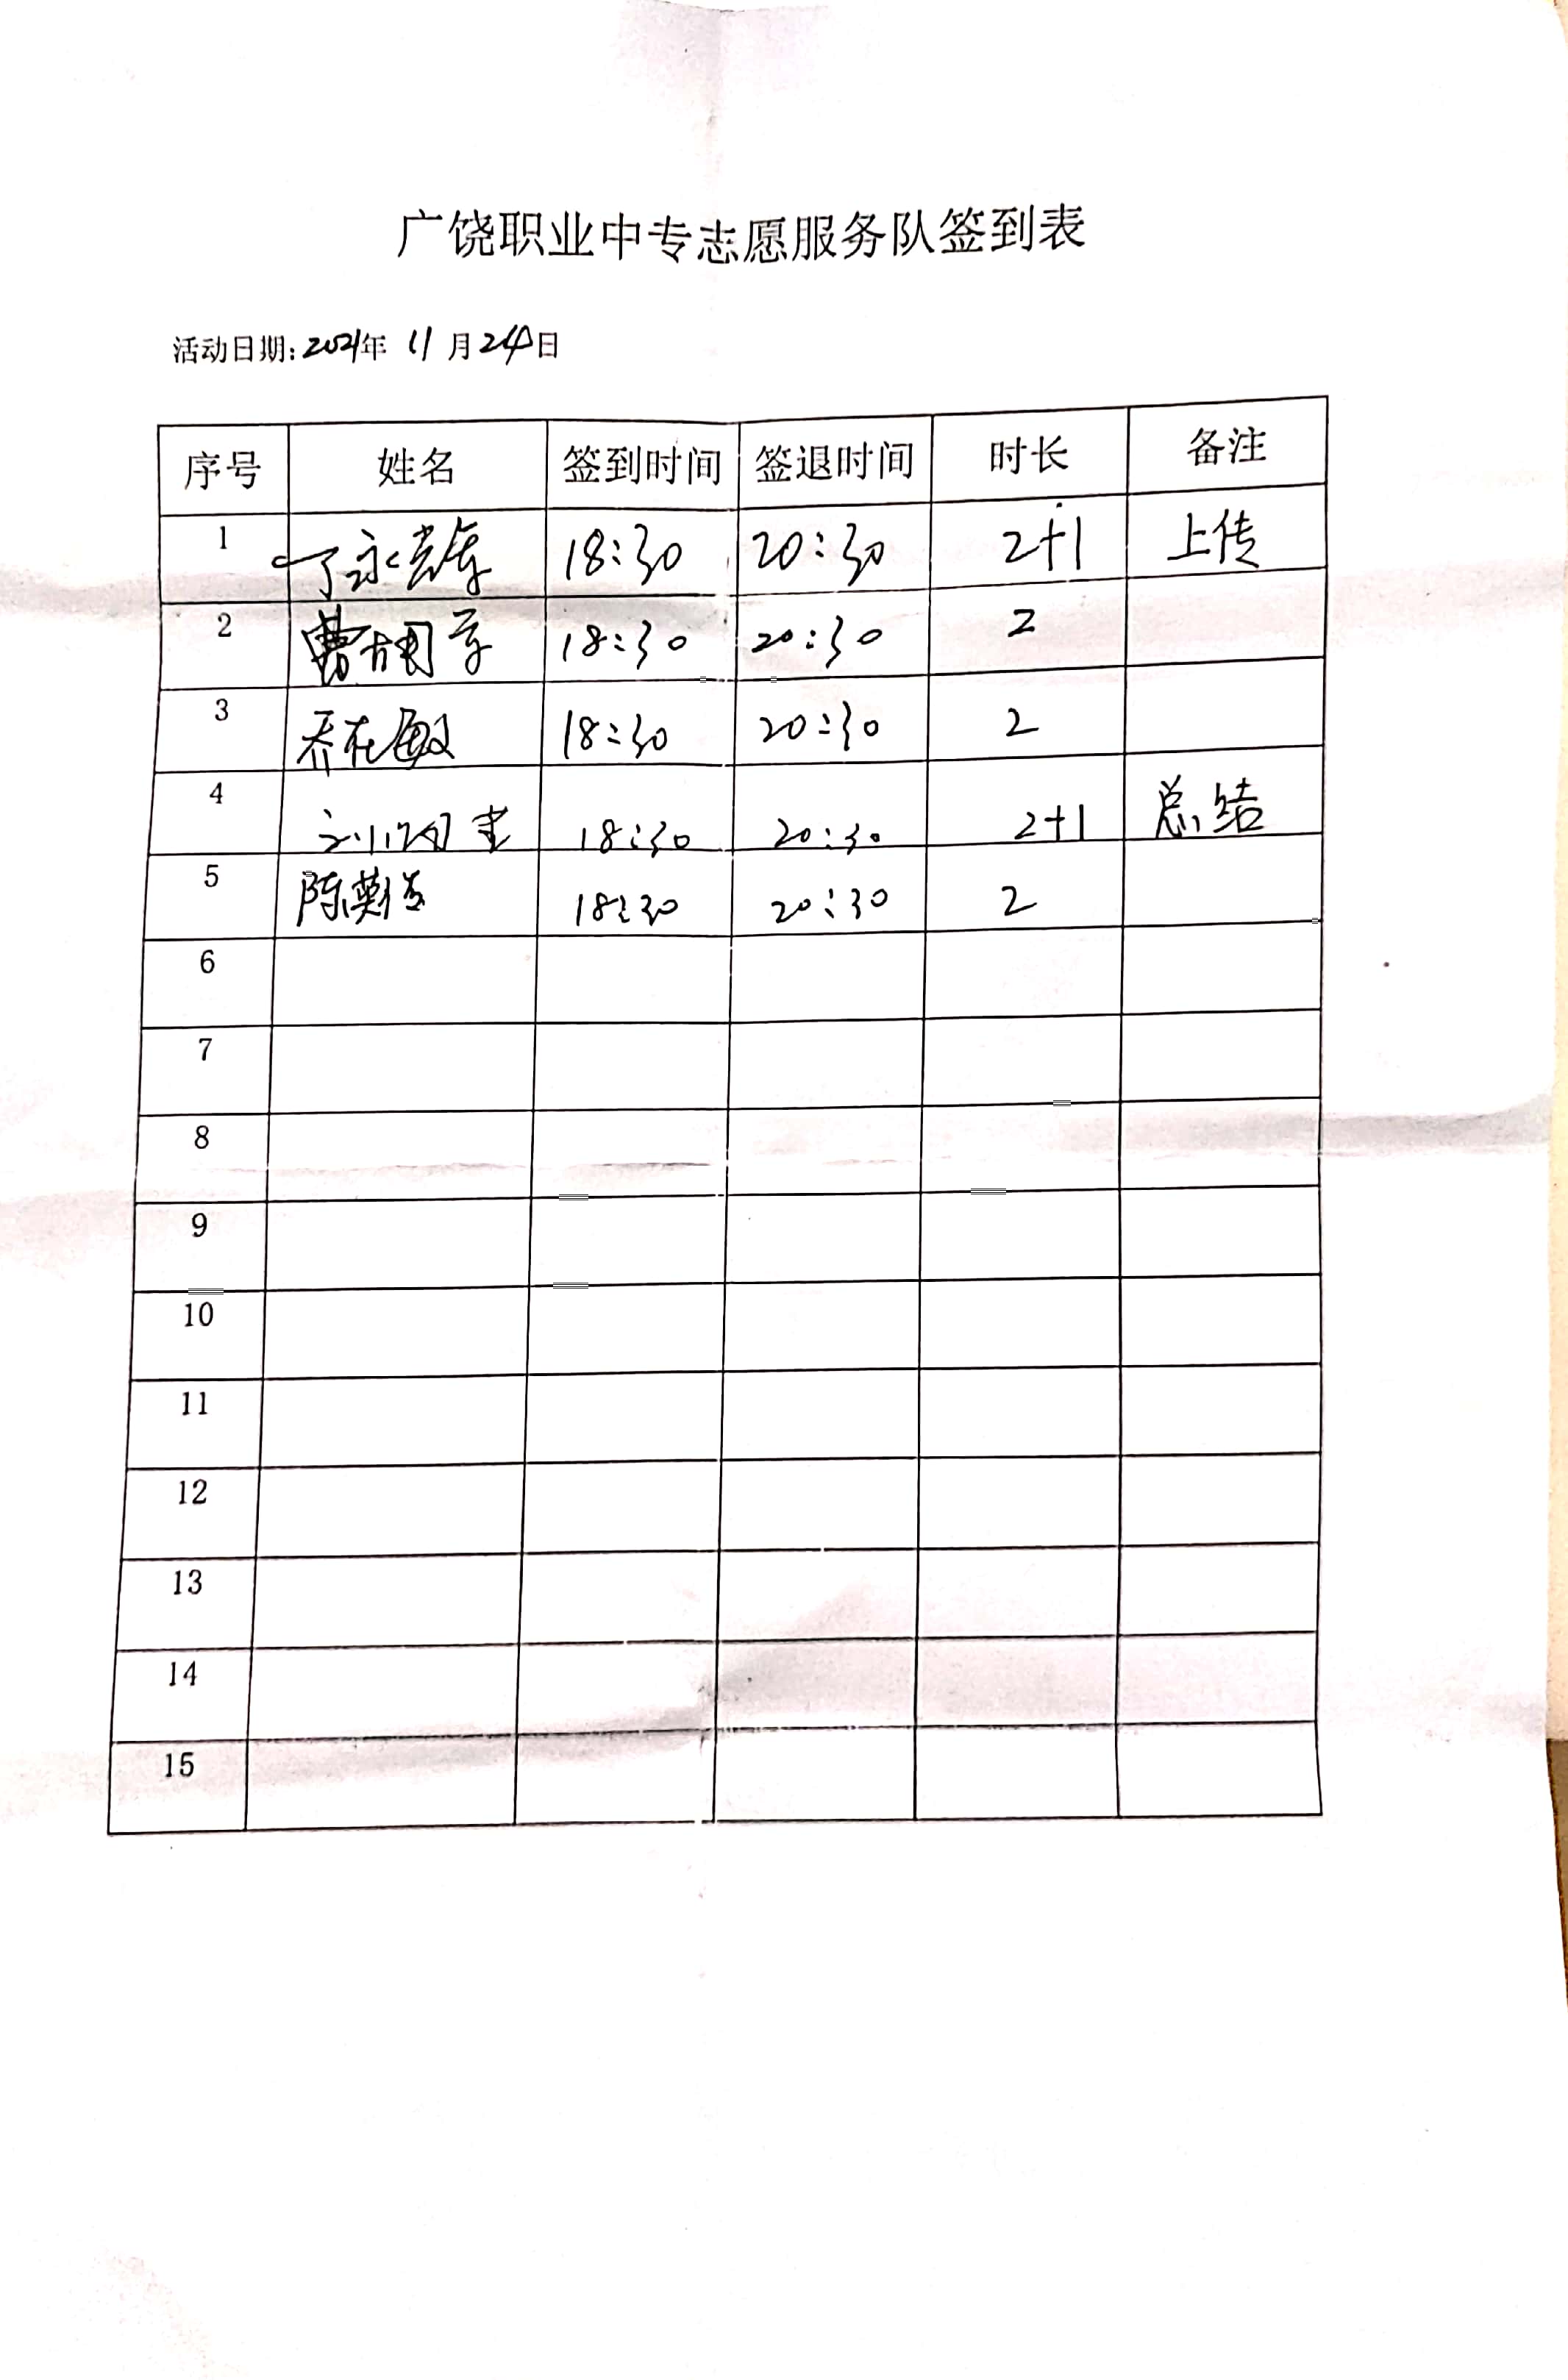 广饶职业中专志愿服务队签到表
活动日期:2021年 11月24日
序号 姓名 签到时间 签退时间 时长 备注
1 丁永 18:30 20:30 2+1 上传
2 曹 18:30 20:30 2
3 乔在敏 18:30 20:30 2
4 18:30 20:30 2+1 总结
5 陈 18:30 20:30 2
6
7
8
9
10
11
12
13
14
15